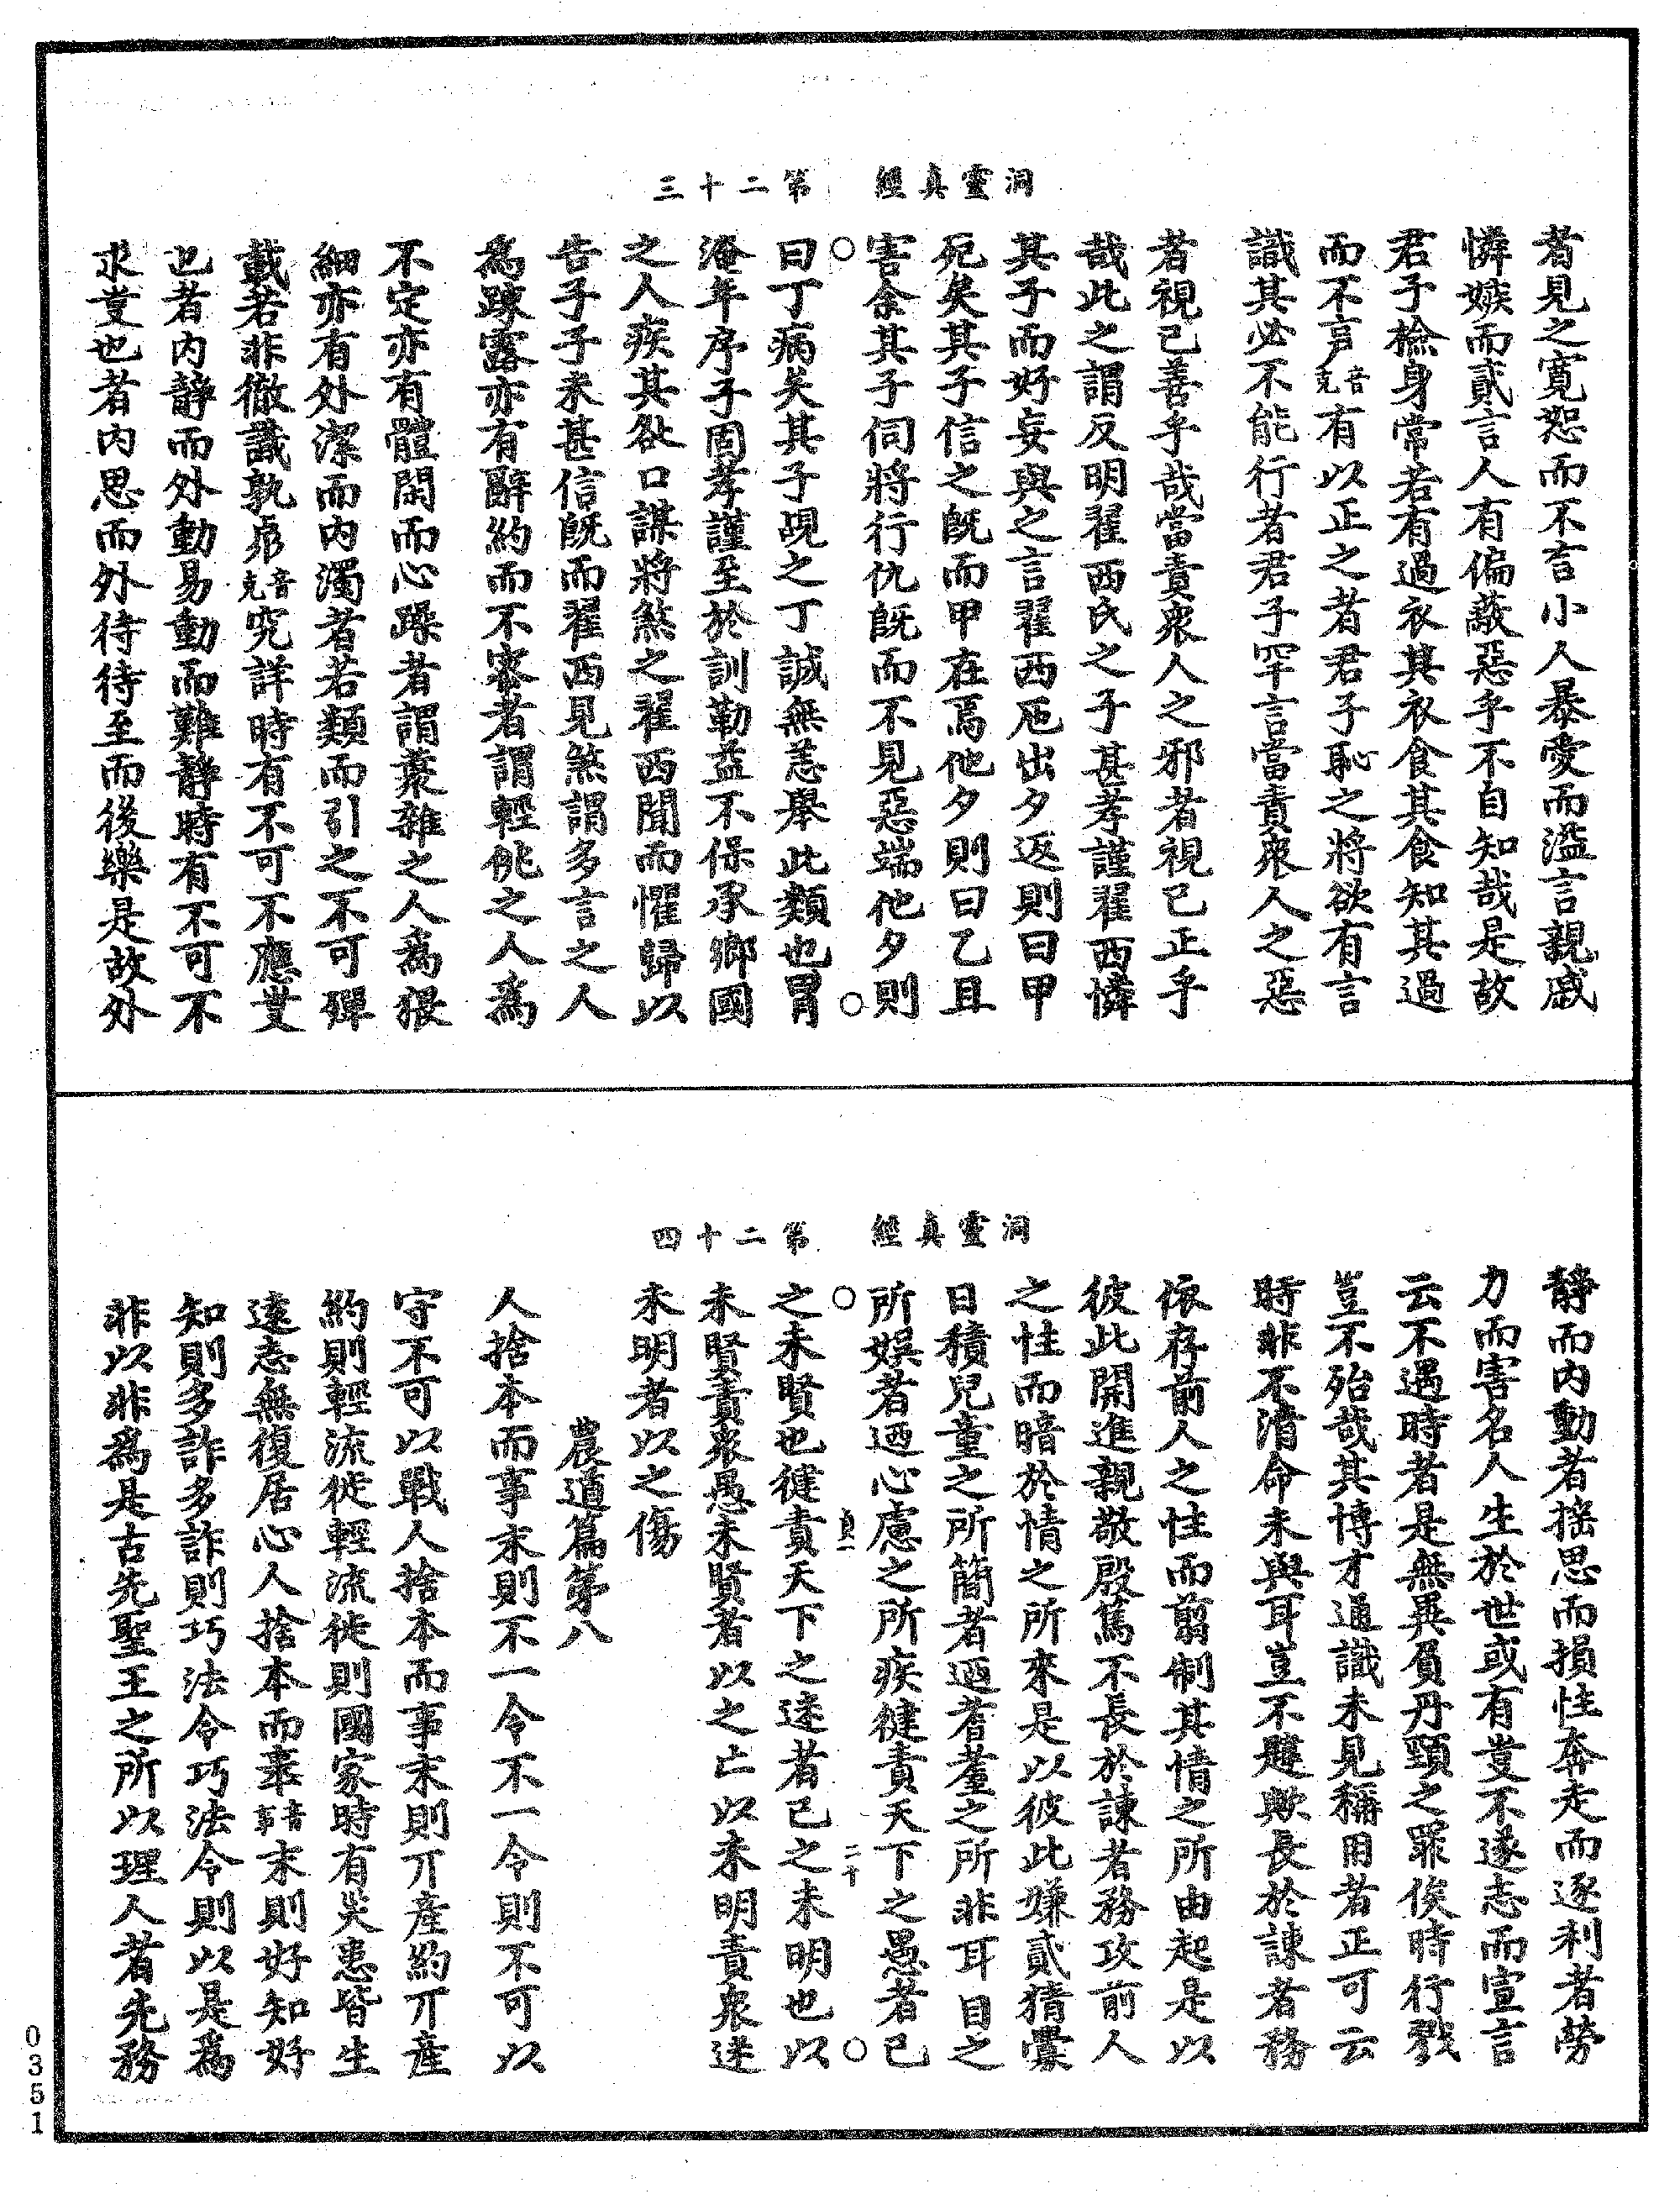 洞靈真經　第二十三
者見之寬恕而不吉小人暴愛而溢言親戚
憐嫉而貳言人有偏蔽惡乎不自知哉是故
君子檢身常若有過衣其衣食其食知其過
而不㐭音克有以正之者君子恥之將欲有言
識其必不能行者君子罕言當責衆人之惡
者視己善乎哉當責衆人之邪者視己正乎
哉此之謂反明翟西氏之子甚孝謹翟西憐
其子而好妄與之言翟西卮出夕返則曰甲
死矣其子信之旣而甲在焉他夕則曰乙且
害余其子伺將行仇旣而不見惡端他夕則
曰丁病矣其子覘之丁誠無恙舉此類也罥
淹年序子固孝謹至於訓勒益不保承鄉國
之人疾其敓口謀將煞之翟西聞而懼歸以
告子子未甚信旣而翟西見煞謂多言之人
爲踈露亦有辭約而不密者謂輕佻之人爲
不定亦有體閑而心躁者謂䙝雜之人爲猥
細亦有外潔而內濁者若類而引之不可殫
載若非徹識孰㐭音克究詳時有不可不應㞢
也者內靜而外動易動而難靜時有不可不
求㞢也者內思而外待待至而後樂是故外
洞靈真經　第二十四
靜而內動者搖思而損性奔走而逐利者勞
力而害名人生於世或有㞢不遂志而宣言
云不遇時者是無異負丹頸之罪俟時行戮
豈不殆哉其博才通識未見稱用若正可云
時非不清命未與耳豈不韙歟長於諫者務
依存前人之性而翦制其情之所由起是以
彼此開進親敬殷篤不長於諫者務攻前人
之性而暗於情之所來是以彼此嫌貳猜釁
日積兒童之所簡者迺耆耋之所非耳目之
所娛者迺心慮之所疾健責天下之愚者己
之未賢也健責天下之迷者己之未明也以
未賢責衆愚未賢者以之亡以未明責衆迷
未明者以之傷
農道篇第八
人捨本而事末則不一令不一令則不可以
守不可以戰人捨本而事末則丌產約丌產
約則輕流徙輕流徙則國家時有災患皆生
遠志無復居心人捨本而㫖音事末則好知好
知則多詐多詐則巧法令巧法令則以是爲
非以非爲是古先聖王之所以理人者先務
貞一
二十
0351